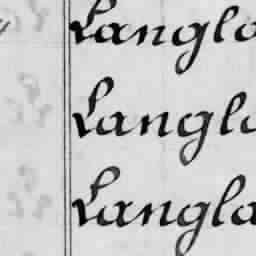 Langlo
Langlo
Langla